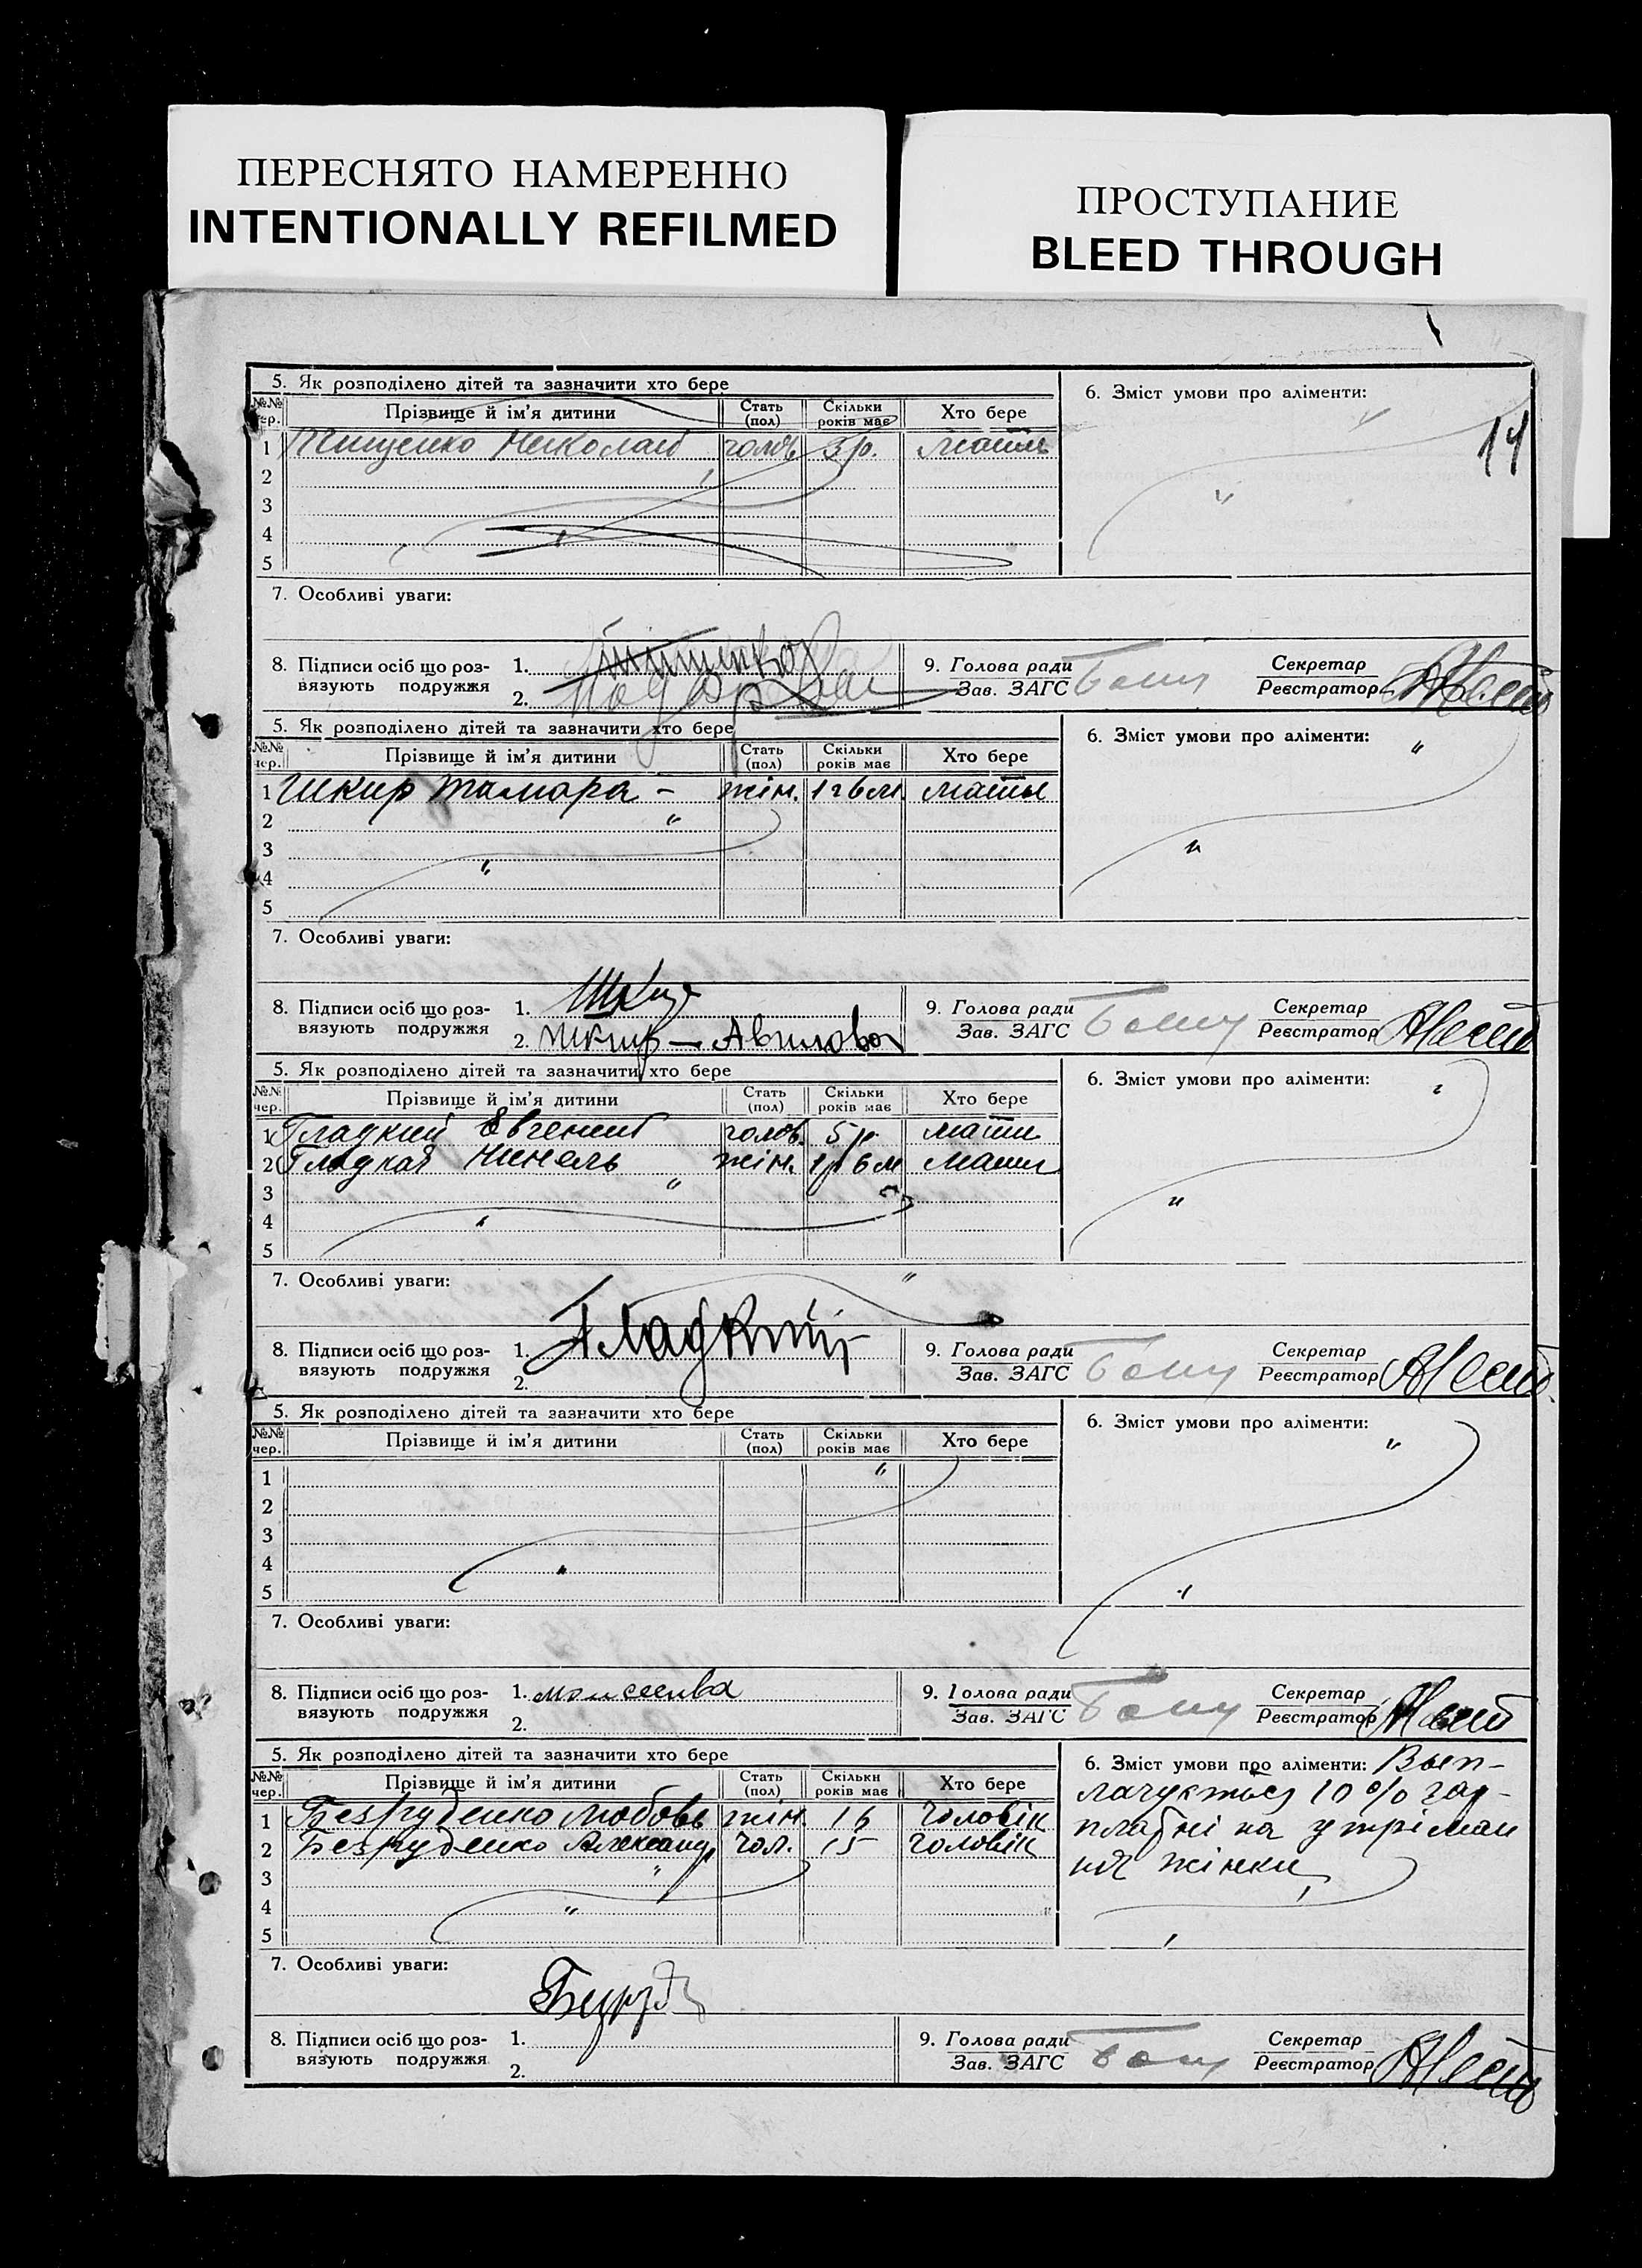 ПЕРЕСНЯТО НАМЕРЕННО
INTENTIONALLY REFILMED
ПРОСТУПАНИЕ
BLEED THROUGH
14
5. Як розподілено дітей та зазначити хто бере
6. Зміст умови про аліменти:
№№ чер. Прізвище й ім'я дитини Стать (пол) Скільки років має Хто бере
1 Тищенко Николай голов. 3 р. мати
2
3
4
5
7. Особливі уваги:
8. Підписи осіб що роз-
вязують подружжя
1. Тищенко
2.
9. Голова ради
Зав. ЗАГС
Секретар
Реєстратор
5. Як розподілено дітей та зазначити хто бере
6. Зміст умови про аліменти: "
№№ чер. Прізвище й ім'я дитини Стать (пол) Скільки років має Хто бере
1 Шкир Тамара - жін. 1 г 6 м. мать
2 "
3 "
4
5
7. Особливі уваги:
8. Підписи осіб що роз-
вязують подружжя
1. Шкир
2. Шкир - Авилова
9. Голова ради
Зав. ЗАГС
Секретар
Реєстратор
5. Як розподілено дітей та зазначити хто бере
6. Зміст умови про аліменти:
№№ чер. Прізвище й ім'я дитини Стать (пол) Скільки років має Хто бере
1 Гладкий Евгений голов. 5 р. мати
2 Гладкая Нинель жін. 1 р 6 м мати
3 "
4
5
7. Особливі уваги: "
8. Підписи осіб що роз-
вязують подружжя
1. Гладкий
2.
9. Голова ради
Зав. ЗАГС
Секретар
Реєстратор
5. Як розподілено дітей та зазначити хто бере
6. Зміст умови про аліменти: "
№№ чер. Прізвище й ім'я дитини Стать (пол) Скільки років має Хто бере
1 "
2
3
4 "
5
7. Особливі уваги:
8. Підписи осіб що роз-
вязують подружжя
1. Моисеева
2.
9. Голова ради
Зав. ЗАГС
Секретар
Реєстратор
5. Як розподілено дітей та зазначити хто бере
6. Зміст умови про аліменти: Вып-
лачується 10% зар-
платні на утріман
ня жінки
№№ чер. Прізвище й ім'я дитини Стать (пол) Скільки років має Хто бере
1 Безруденко Любовь жін. 16 чоловік
2 Безруденко Александр чол. 15 чоловік
3 "
4 "
5
7. Особливі уваги:
8. Підписи осіб що роз-
вязують подружжя
1.
2.
9. Голова ради
Зав. ЗАГС
Секретар
Реєстратор